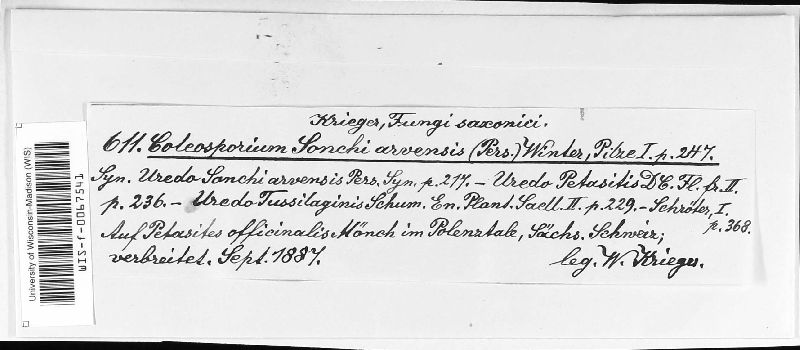 Krieger, Fungi saxonici.
611. Coleosporium Sonchi arvensis (Pers.) Winter, Pilze I. p. 247.
Syn. Uredo Sonchi arvensis Pers. Syn. p. 217. — Uredo Petasitis DC. Fl. fr. II.
p. 236. — Uredo Tussilaginis Schum. En. Plant. Saell. II. p. 229. — Schröter, I.
p. 368.
Auf Petasites officinalis Mönch im Polenztale, Sächs. Schweiz;
verbreitet. Sept. 1887. leg. W. Krieger.
University of Wisconsin-Madison (WIS)
WIS-f-0067541